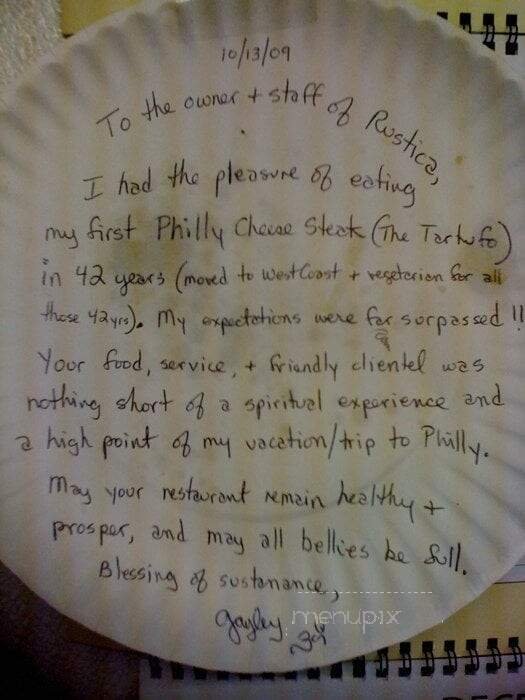 10/13/09
To the owner + staff of Rustica,
I had the pleasure of eating
my first Philly Cheese Steak (The Tartufo)
in 42 years (moved to West Coast + vegetarian for all
those 42yrs). My expectations were far surpassed!!
Your food, service, + friendly clientel was
nothing short of a spiritual experience and
a high point of my vacation/trip to Philly.
May your restaurant remain healthy +
prosper, and may all bellies be full.
Blessing of sustanance,
Gayley
menupix